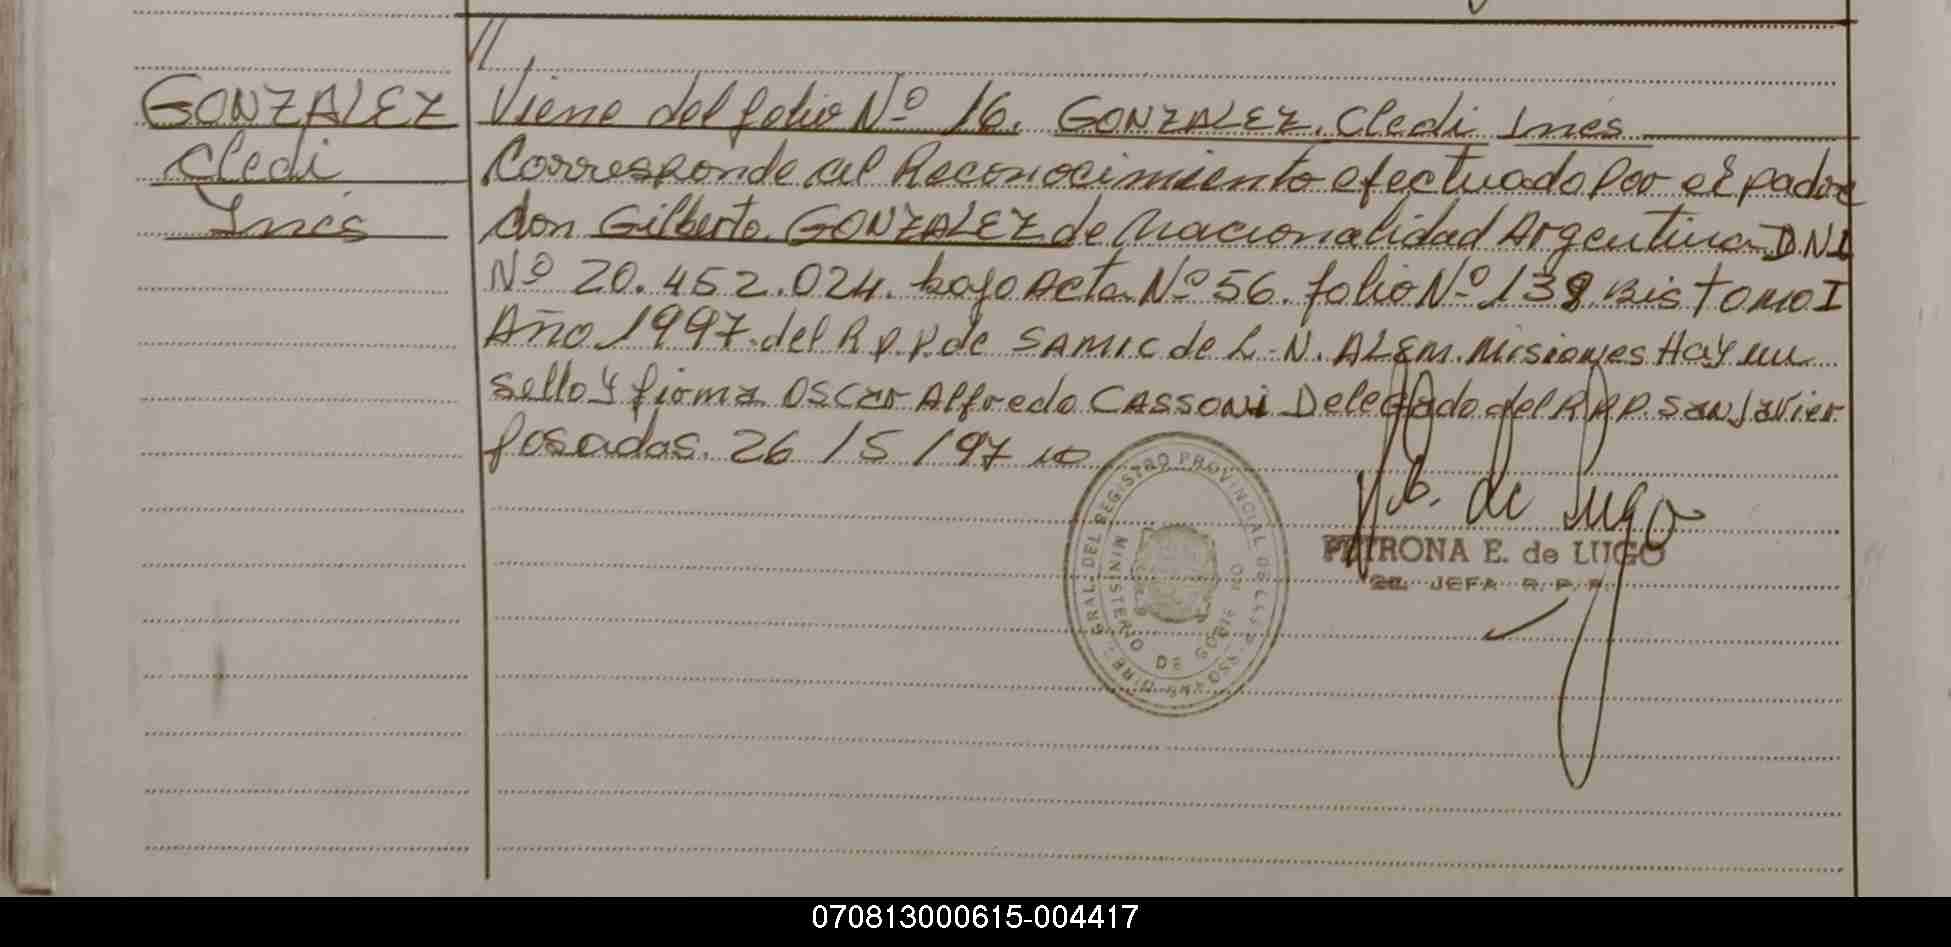 //
GONZALEZ
Cledi
Inés
Viene del folio Nº 16. GONZALEZ, Cledi Inés
Corresponde al Reconocimiento efectuado por el padre
don Gilberto GONZALEZ de Nacionalidad Argentina D.N.I
Nº 20.452.024. bajo Acta Nº 56. folio Nº 138 Bis Tomo I
Año 1997. del R.P.P. de SAMIC de L.N. ALEM. Misiones Hay un
sello y firma Oscar Alfredo CASSONI Delegado del R.P.P. San Javier
Posadas. 26 / 5 / 97
P.E. de Lugo
PETRONA E. de LUGO
JEFA R. P. P.
GRAL. DEL REGISTRO PROVINCIAL DE LAS P.
MINISTERIO DE GOBIERNO
070813000615-004417